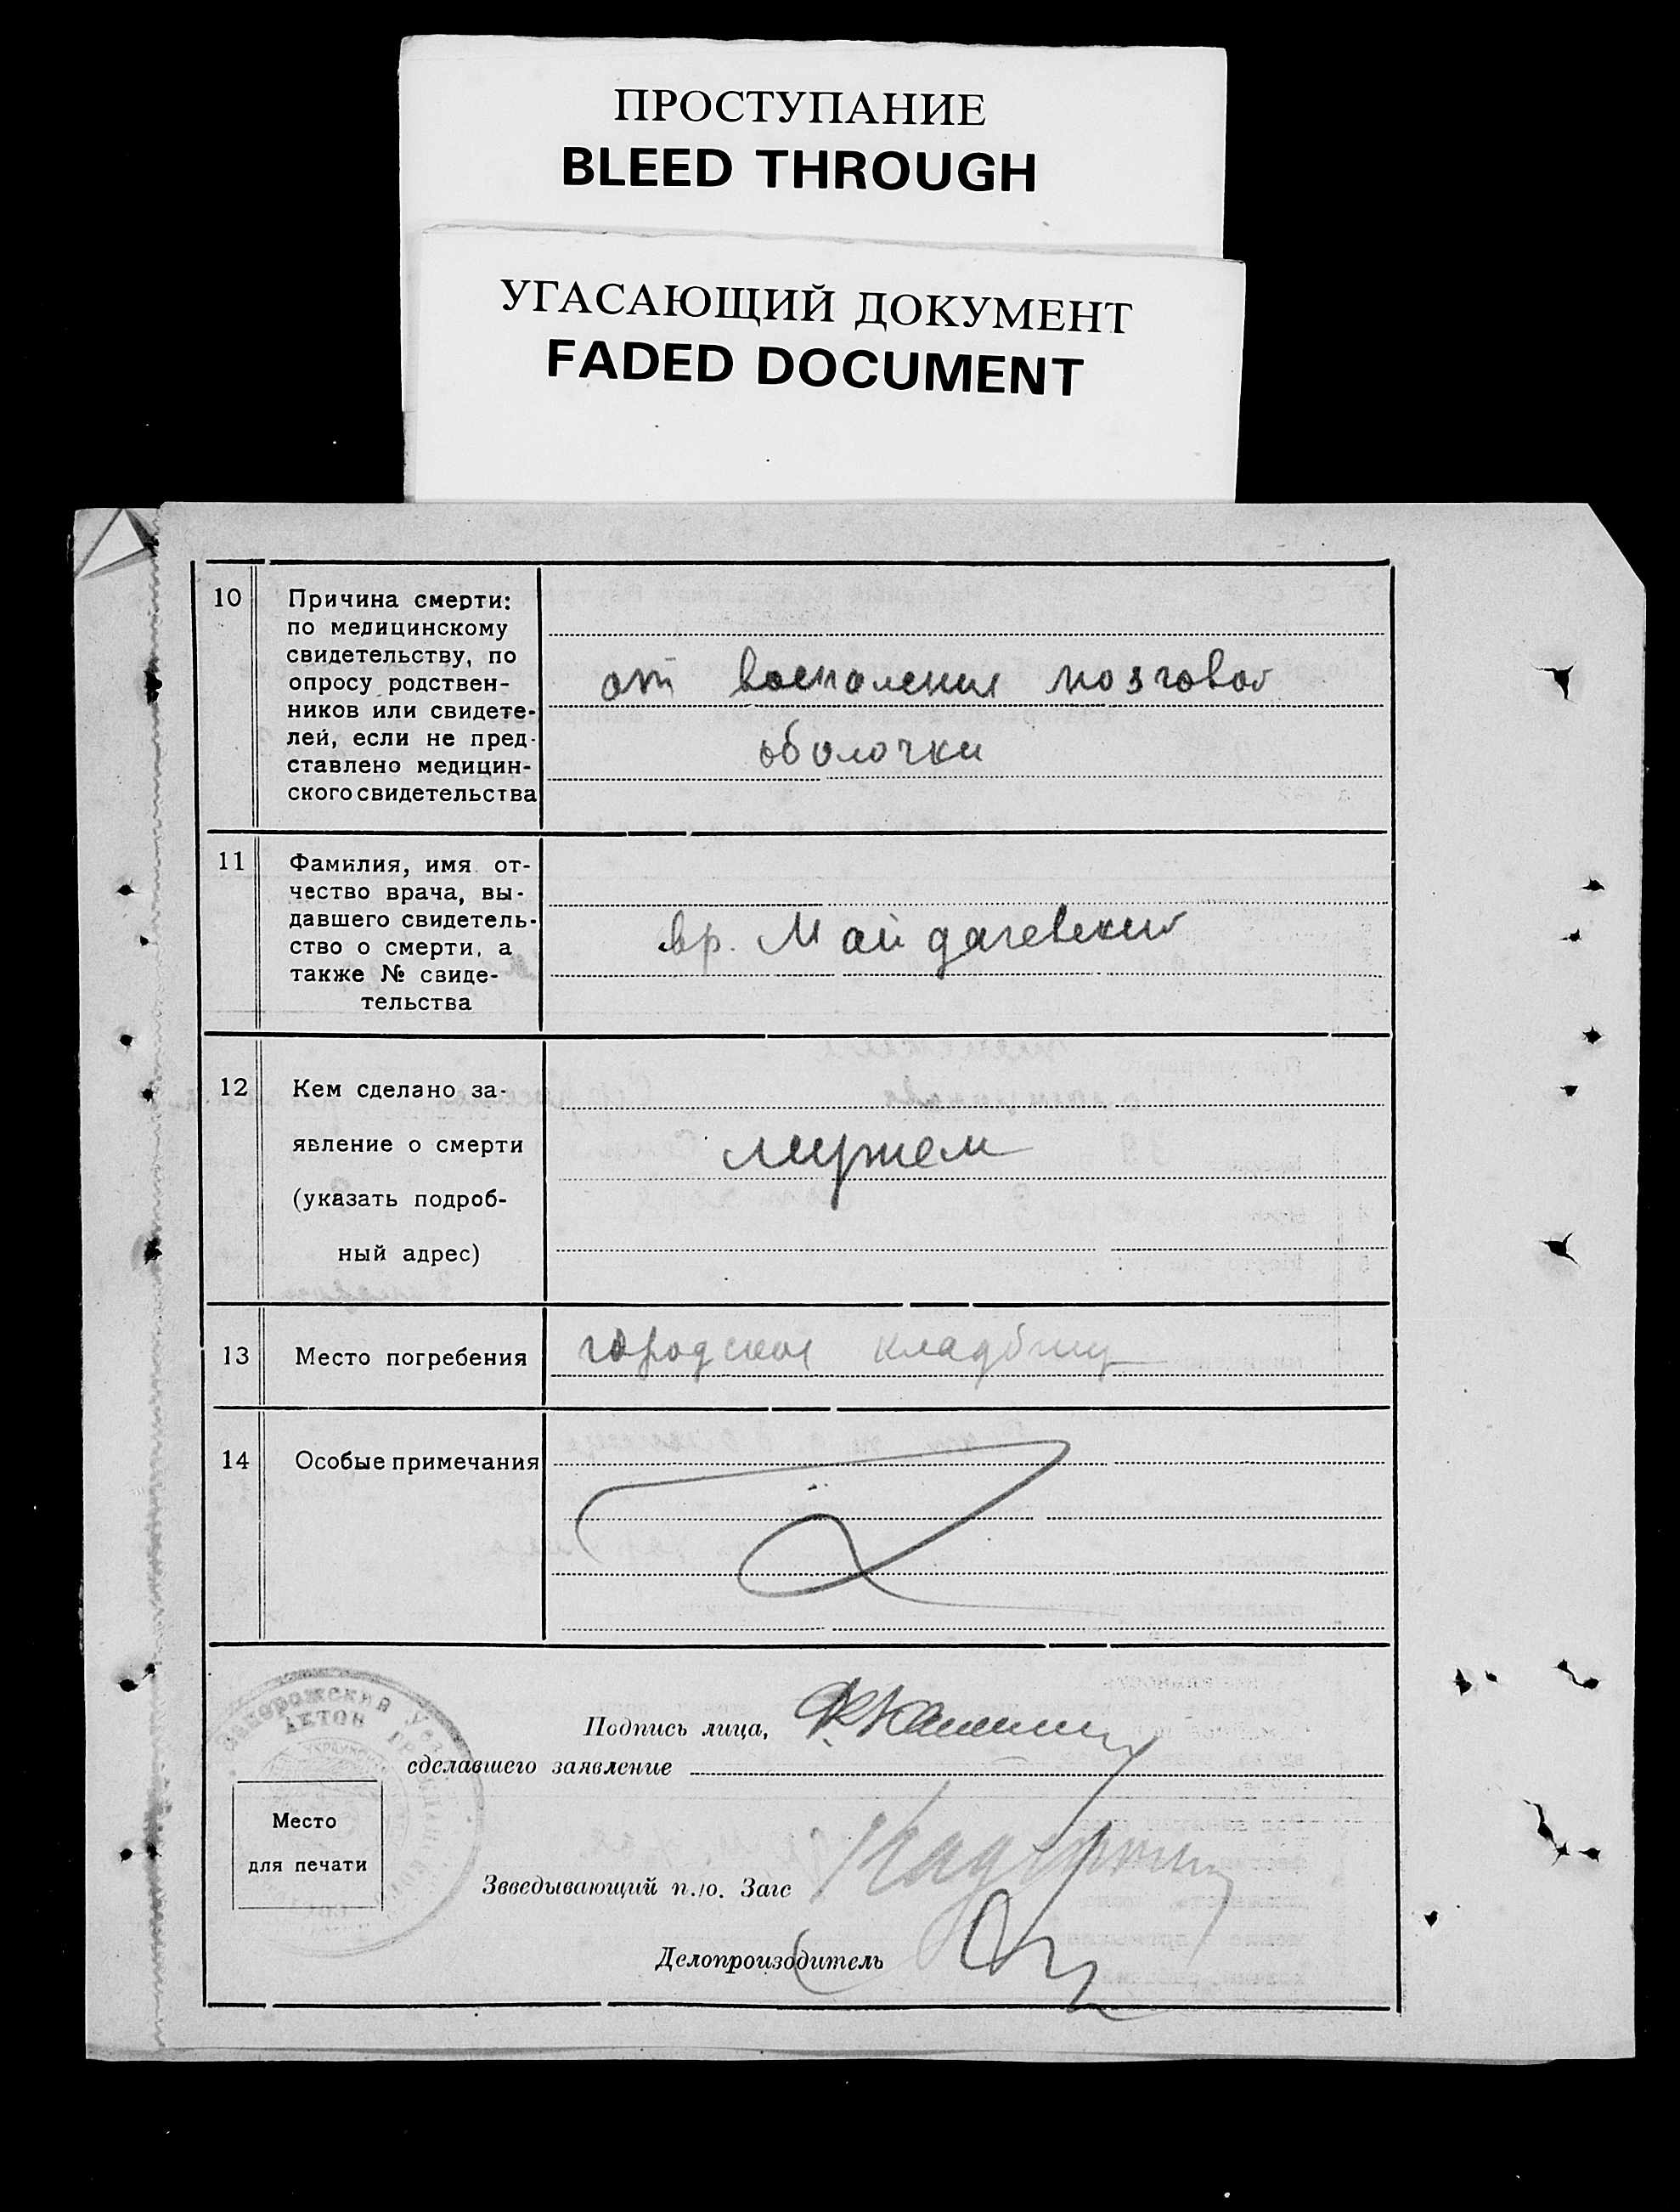 ПРОСТУПАНИЕ
BLEED THROUGH
УГАСАЮЩИЙ ДОКУМЕНТ
FADED DOCUMENT
10 Причина смерти:
по медицинскому
свидетельству, по
опросу родствен-
ников или свидете-
лей, если не пред-
ставлено медицин-
ского свидетельства
от воспаления мозговой
оболочки
11 Фамилия, имя от-
чество врача, вы-
давшего свидетель-
ство о смерти, а
также № свиде-
тельства
вр. Майдачевский
12 Кем сделано за-
явление о смерти
(указать подроб-
ный адрес)
мужем
13 Место погребения городское кладбищ
14 Особые примечания
Запорожский
АКТОВ
Подпись лица,
сделавшего заявление
Место
для печати
Зеведывающий п./о. Загс
Делопроизводитель